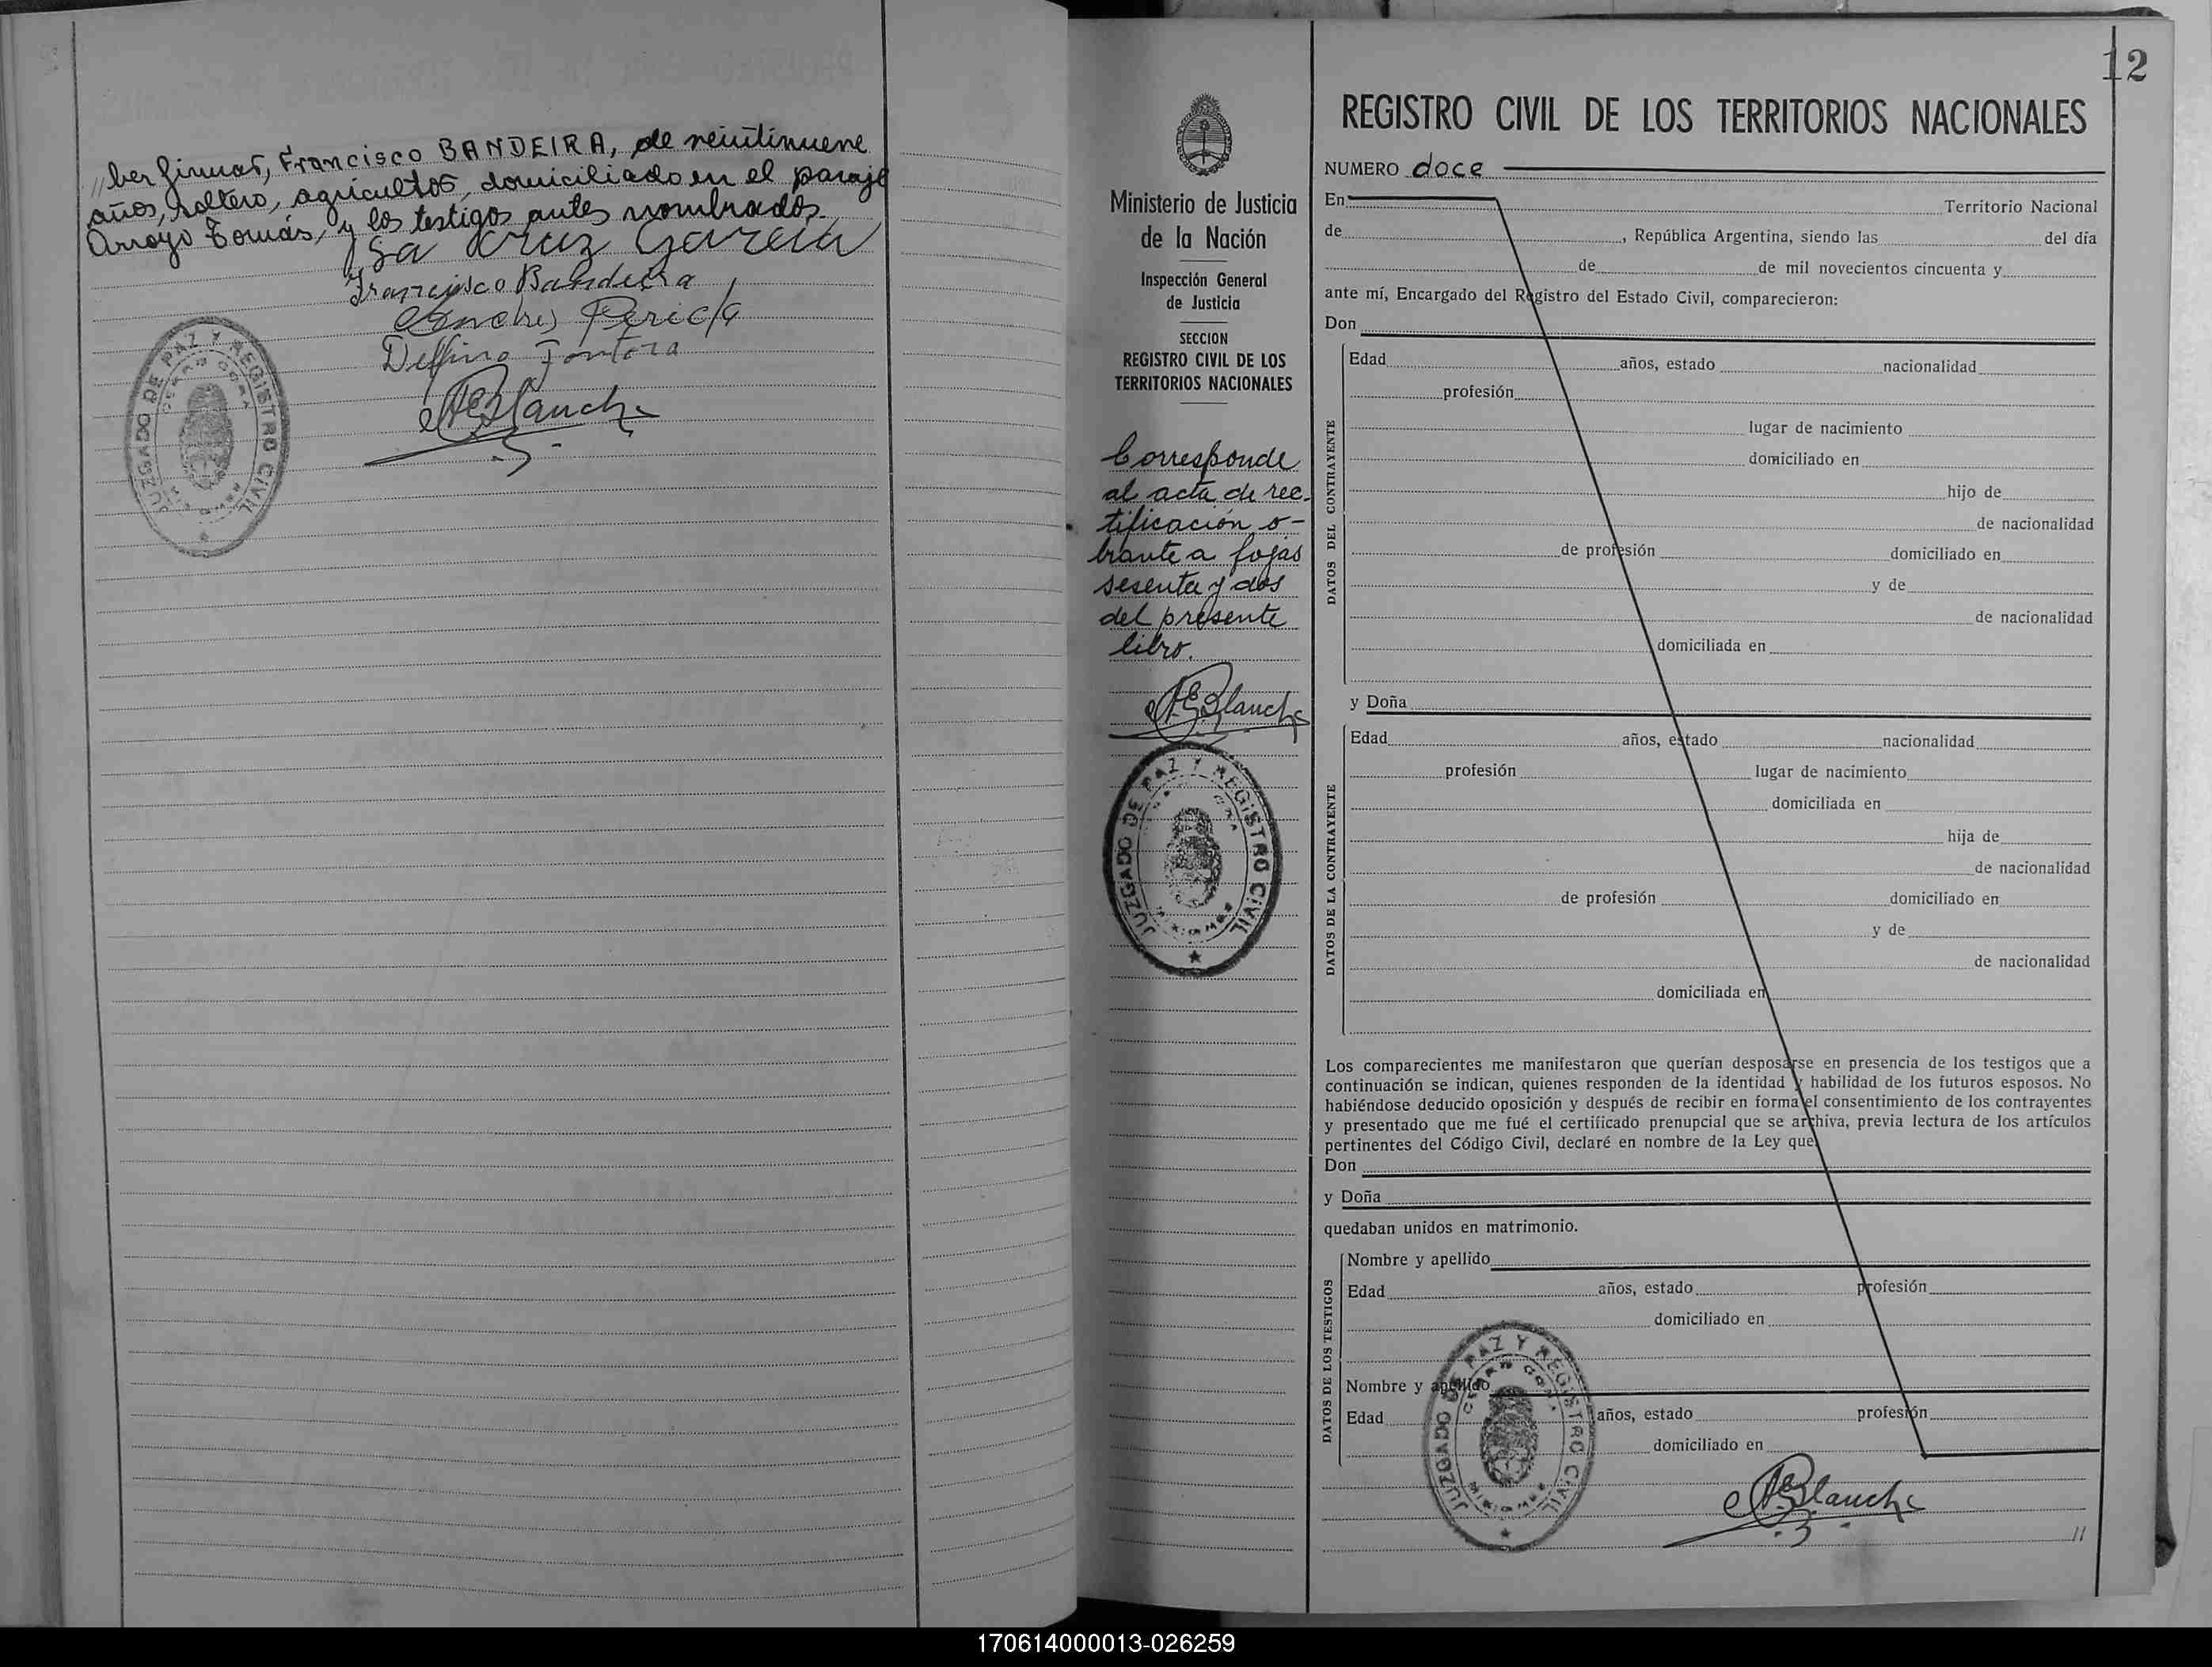 „ber firmar, Francisco BANDEIRA, de veintinueve
años, soltero, agricultor, domiciliado en el paraje
Arroyo Tomás, y los testigos antes nombrados.
Sa Cruz Garcia
Francisco Bandeira
Delfino Fontora
JUZGADO DE PAZ Y REGISTRO CIVIL
CERRO CORA
MISIONES
12
Ministerio de Justicia
de la Nación
Inspección General
de Justicia
SECCION
REGISTRO CIVIL DE LOS
TERRITORIOS NACIONALES
Corresponde
al acta de rec-
tificación o-
brante a fojas
sesenta y dos
del presente
libro.
JUZGADO DE PAZ Y REGISTRO CIVIL
REGISTRO CIVIL DE LOS TERRITORIOS NACIONALES
NUMERO doce
En Territorio Nacional
de , República Argentina, siendo las del día
de de mil novecientos cincuenta y
ante mí, Encargado del Registro del Estado Civil, comparecieron:
Don
DATOS DEL CONTRAYENTE
Edad años, estado nacionalidad
profesión
lugar de nacimiento
domiciliado en
hijo de
de nacionalidad
de profesión domiciliado en
y de
de nacionalidad
domiciliada en
y Doña
DATOS DE LA CONTRAYENTE
Edad años, estado nacionalidad
profesión lugar de nacimiento
domiciliada en
hija de
de nacionalidad
de profesión domiciliado en
y de
de nacionalidad
domiciliada en
Los comparecientes me manifestaron que querían desposarse en presencia de los testigos que a
continuación se indican, quienes responden de la identidad y habilidad de los futuros esposos. No
habiéndose deducido oposición y después de recibir en forma el consentimiento de los contrayentes
y presentado que me fué el certificado prenupcial que se archiva, previa lectura de los artículos
pertinentes del Código Civil, declaré en nombre de la Ley que
Don
y Doña
quedaban unidos en matrimonio.
DATOS DE LOS TESTIGOS
Nombre y apellido
Edad años, estado profesión
domiciliado en
Nombre y apellido
Edad años, estado profesión
domiciliado en
JUZGADO DE PAZ Y REGISTRO CIVIL
CERRO CORA
MISIONES
//
170614000013-026259